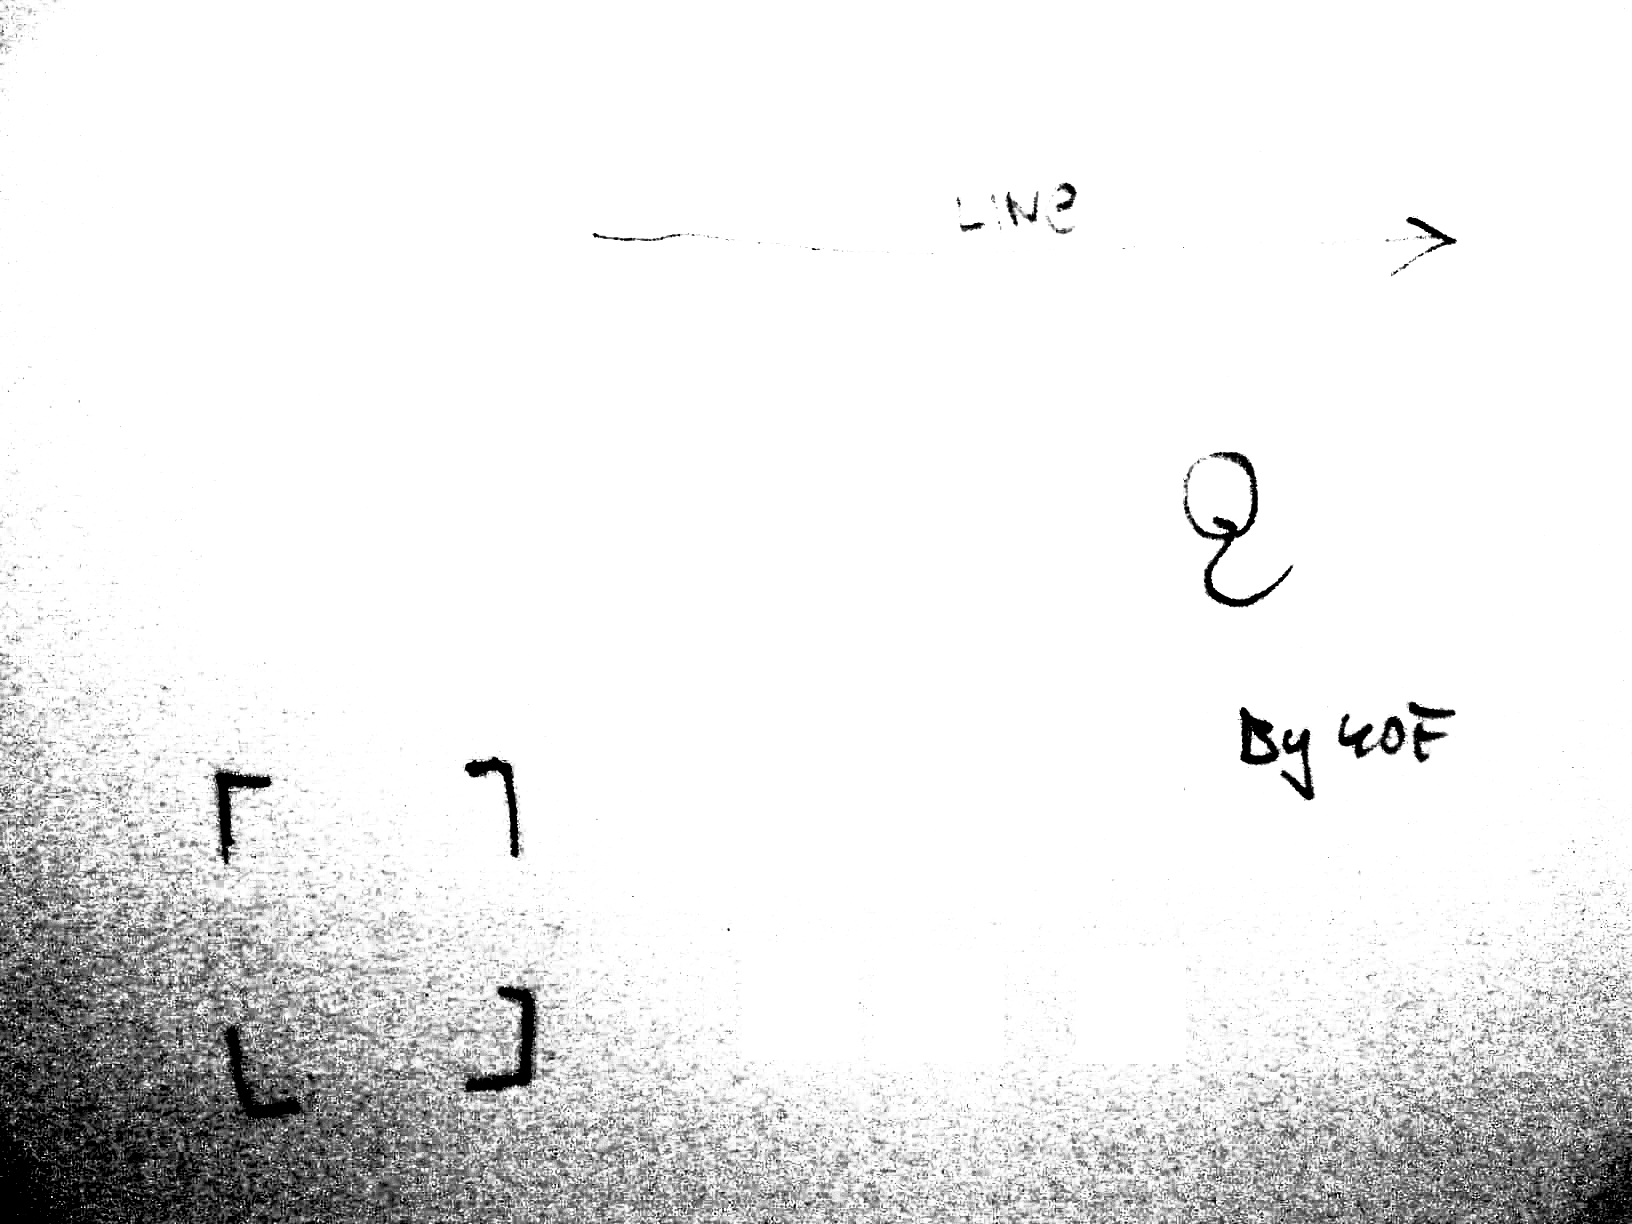 LINE
Q
By 40F